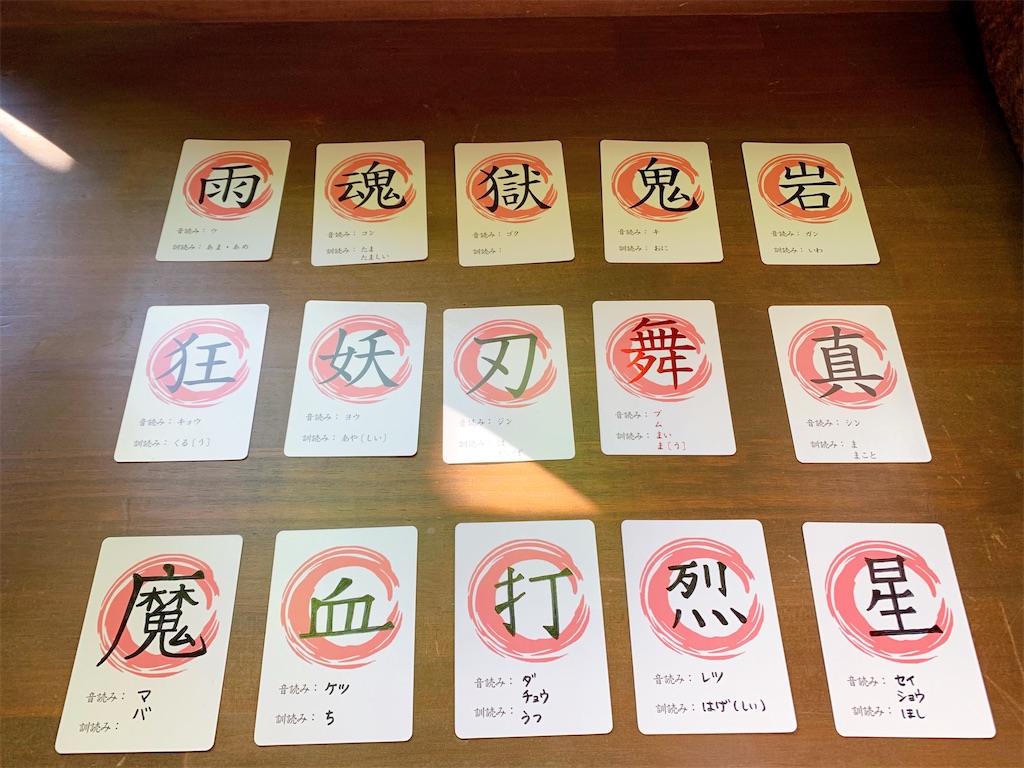 雨
音読み：ウ
訓読み：あま・あめ
魂
音読み：コン
訓読み：たま
たましい
獄
音読み：ゴク
訓読み：
鬼
音読み：キ
訓読み：おに
岩
音読み：ガン
訓読み：いわ
狂
音読み：キョウ
訓読み：くる［う］
妖
音読み：ヨウ
訓読み：あや［しい］
刃
音読み：ジン
訓読み：は
舞
音読み：ブ
ム
訓読み：まい
ま［う］
真
音読み：シン
訓読み：ま
まこと
魔
音読み：マ
バ
訓読み：
血
音読み：ケツ
訓読み：ち
打
音読み：ダ
チョウ
訓読み：うつ
烈
音読み：レツ
訓読み：はげ(しい)
星
音読み：セイ
ショウ
訓読み：ほし